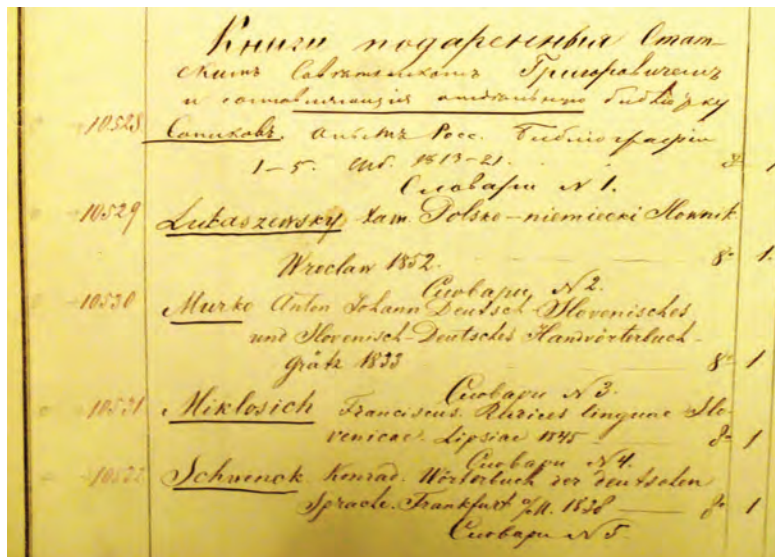 Книги подаренныя Стат-
скимъ Совѣтникомъ Григоровичемъ
и составляющія отдѣльную библіотеку
10528 Сопиковъ. Опытъ Росс. Библіографіи
1–5. Спб. 1813–21. 8º 1
Словари N 1.
10529 Lukaszewsky Xaw. Polsko-niemiecki Slownik
Wroclaw 1852. 8º 1.
Словари N 2.
10530 Murko Anton Johann Deutsch-Slovenisches
und Slovenisch-Deutsches Handwörterbuch-
Grätz 1833 8º 1
Словари N 3.
10531 Miklosich Franciscus. Radices linguae Slo-
venicae. Lipsiae 1845 8º 1
Словари N 4.
10532 Schwenck Konrad. Wörterbuch der deutschen
Sprache. Frankfurt a/M. 1838 8º 1
Словари N 5.